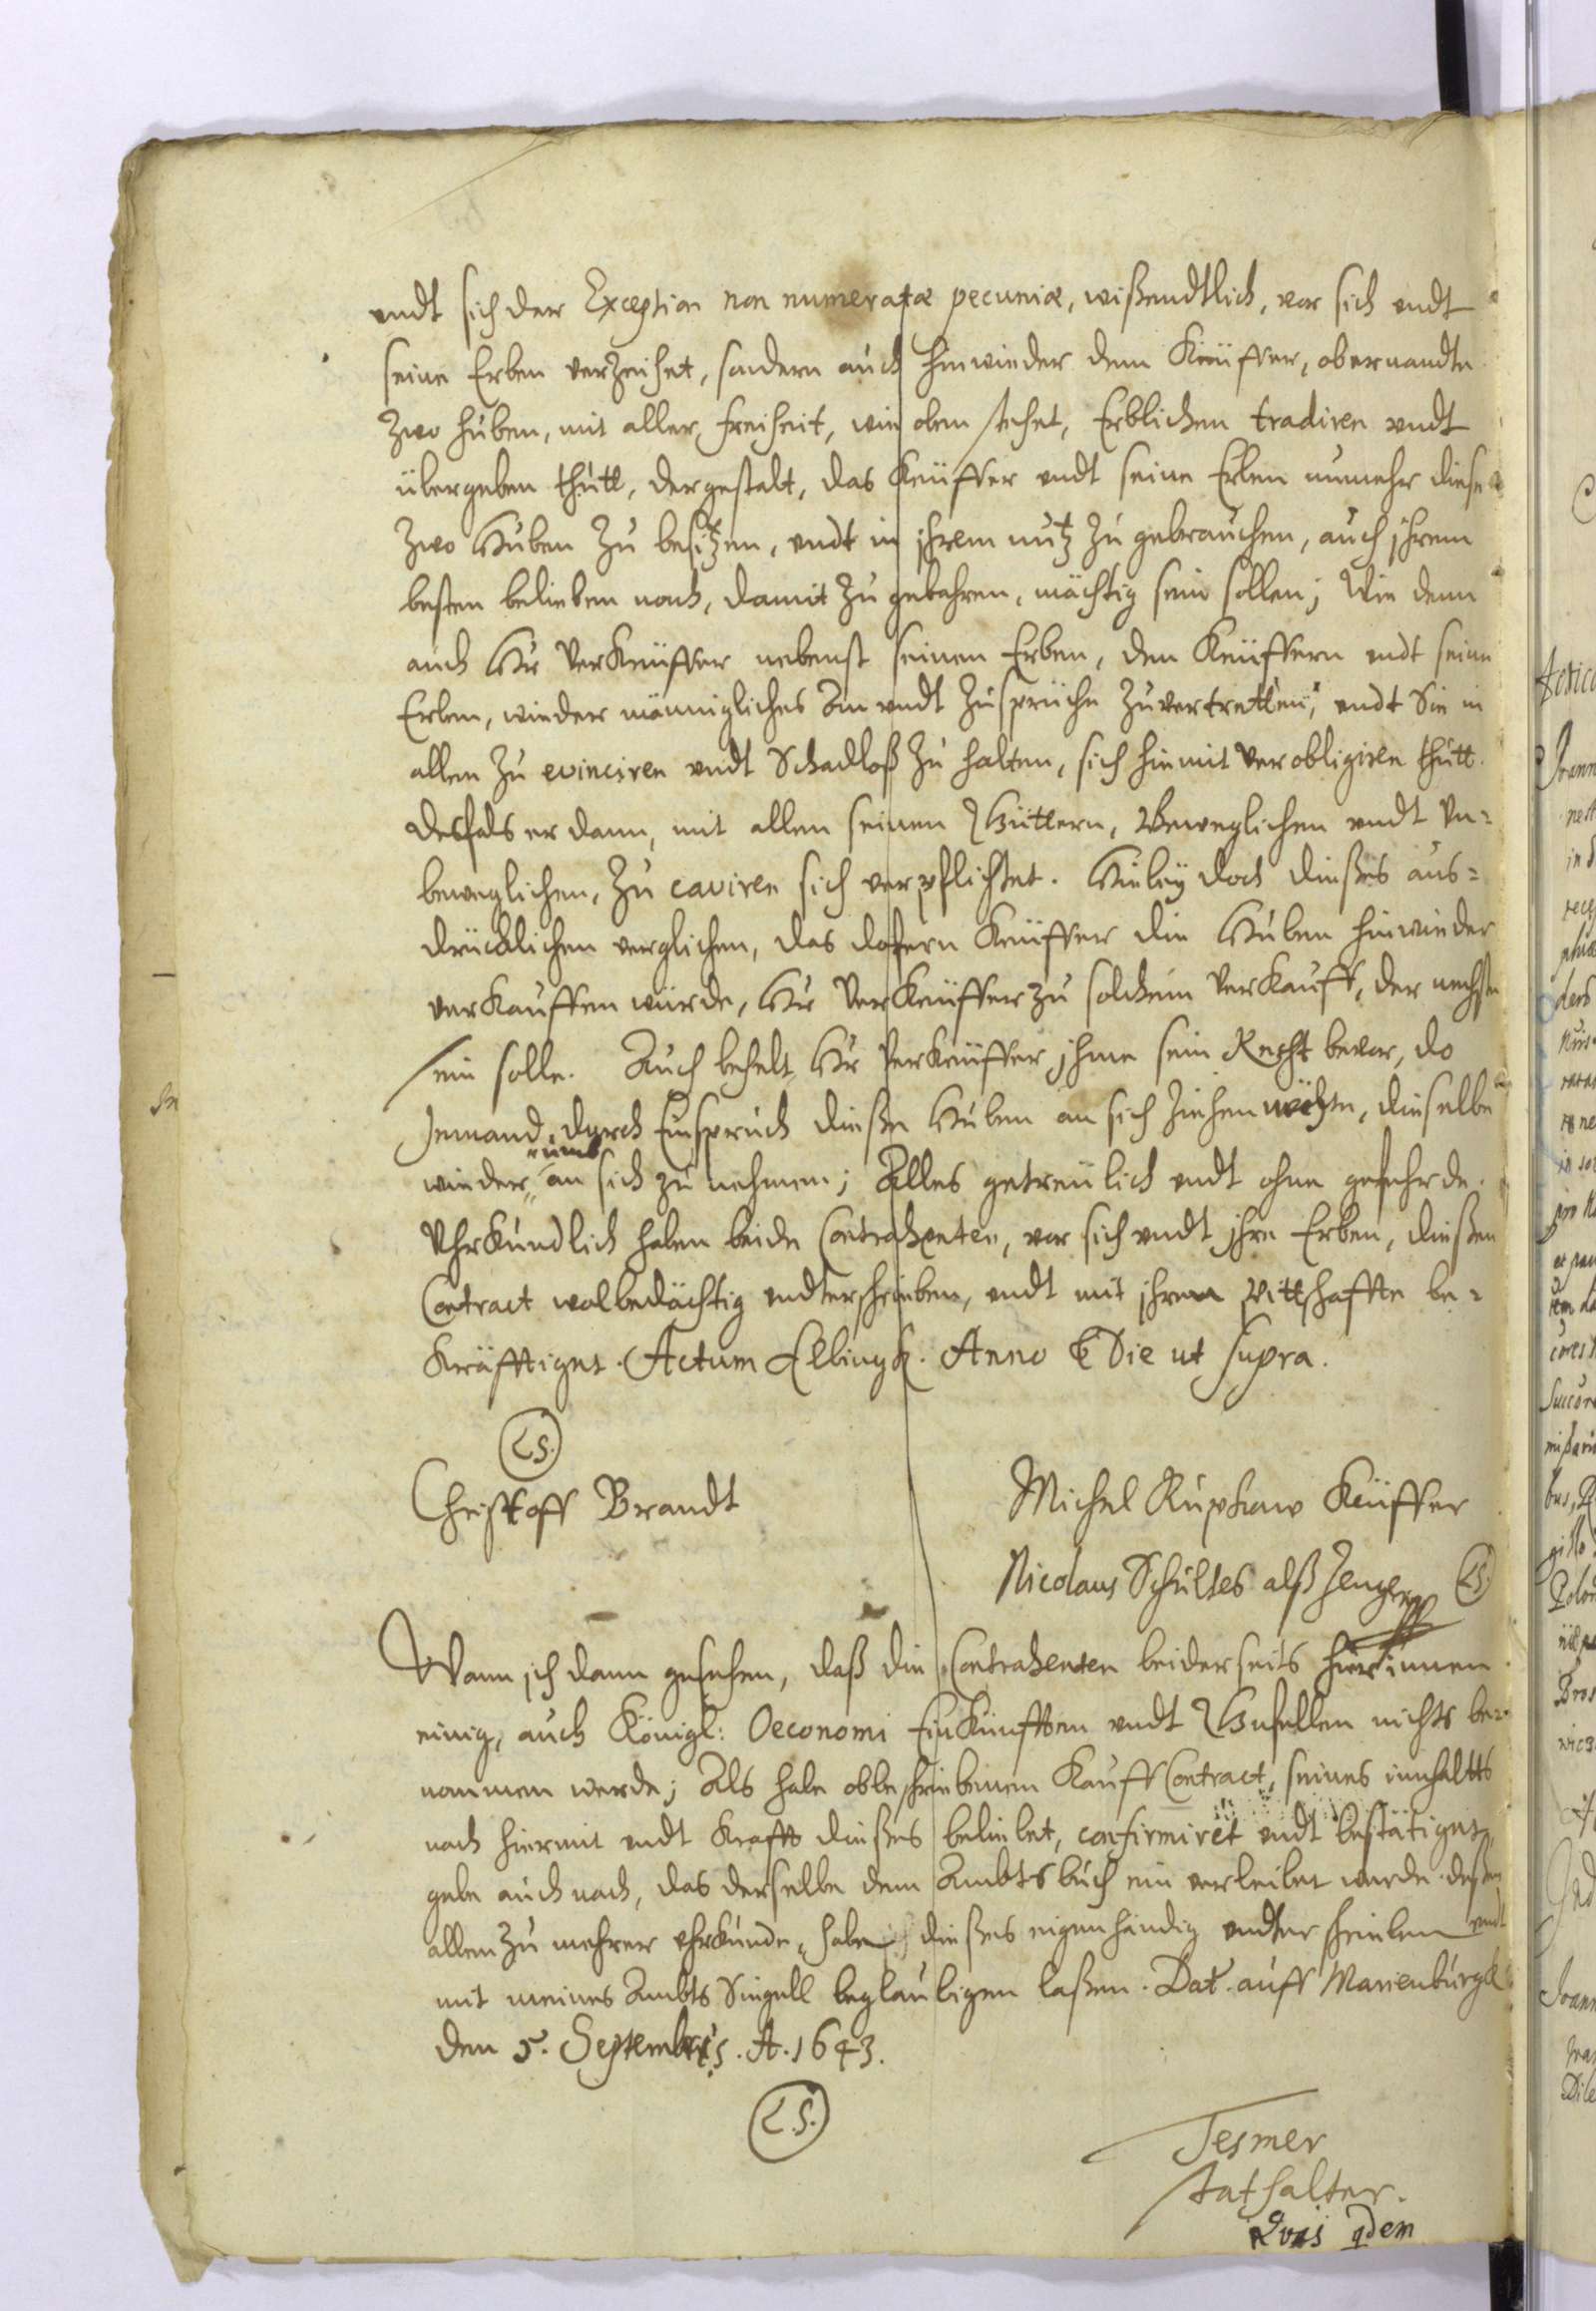 undt sich der Exception non numeratæ pecuniæ, wißendtlich, vor sich undt
seine Erben verzeihet, sondern auch hinwieder dem Keüffer, obernandte
zwo huben, mit aller freiheit, wie oben stehet, Erblichen tradiren undt
übergeben thutt, dergestalt, das Keüffer undt seine Erben numehr diese
zwo Huben zu besitzen, undt in ihrem nutz zu gebrauchen, auch ihrem
besten belieben nach, damit zu gebahren, mächtig sein sollen; Wie denn
auch Hr Verkeüffer nebenst seinen Erben, den Keüffern undt seine
Erben, wieder männigliches An undt Zusprüche zuvertretten, undt Sie in
allem zu evinciren undt Schadloß zu halten, sich hiemit verobligiren thutt.
desfals er dann, mit allen seinen Güttern, Beweglichen undt Un=
beweglichen, zu caviren sich verpflichtet. Hiebey doch dießes aus=
drücklichen verglichen, das dofern Keüffer die Huben hinwieder
verkauffen würde, Hr Verkeüffer zu solchem Verkauff, der nechste
sein solle. Auch behelt Hr Verkeüffer ihme sein Recht bevor, do
Jemand durch Einspruch dieße Huben an sich ziehen möchte, dieselbe
wieder umb an sich zu nehmen; Alles getreülich undt ohne gefehrde.
Uhrkundlich haben beide Contrahenten, vor sich undt ihre Erben, dießen
Contract wolbedächtig undterschrieben, undt mit ihrem Pittschafften be=
kräfftiget. Actum Elbingk. Anno & Die ut supra.
L.S.
Christoff Brandt Michel Ruphaw Keüffer
Nicolaus Schultes alß Zeuge L.S.
Wann ich dann gesehen, daß die Contrahenten beiderseits hierinnen
einig, auch Königl: Oeconomi Einkünfften undt Gefellen nichts be=
nommen werde; Als habe obbeschriebenen Kauff Contract, seines innhaltts
nach hiermit undt Krafft dießes beliebet, confirmiret undt bestätiget,
gebe auch nach, das derselbe dem Ambtsbuch ein verleibet werde. deßen
allen zu mehrer uhrkunde, habe ich dießes eigenhändig undterschrieben undt
mit meines Ambts Siegell beglaubigen laßen. Dat. auff Marienburgk
den 5. Septembris. A. 1643.
L.S.
Tesmer
Stathalter.